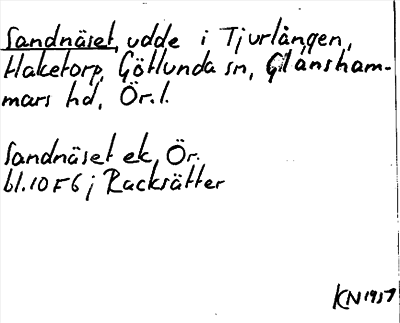 Sandnäset, udde i Tjurlången,
Haketorp, Götlunda sn, Glansham-
mars hd, Ör. l.
Sandnäset ek, Ör.
bl. 10 F 6 ; Racksätter
KN 1957